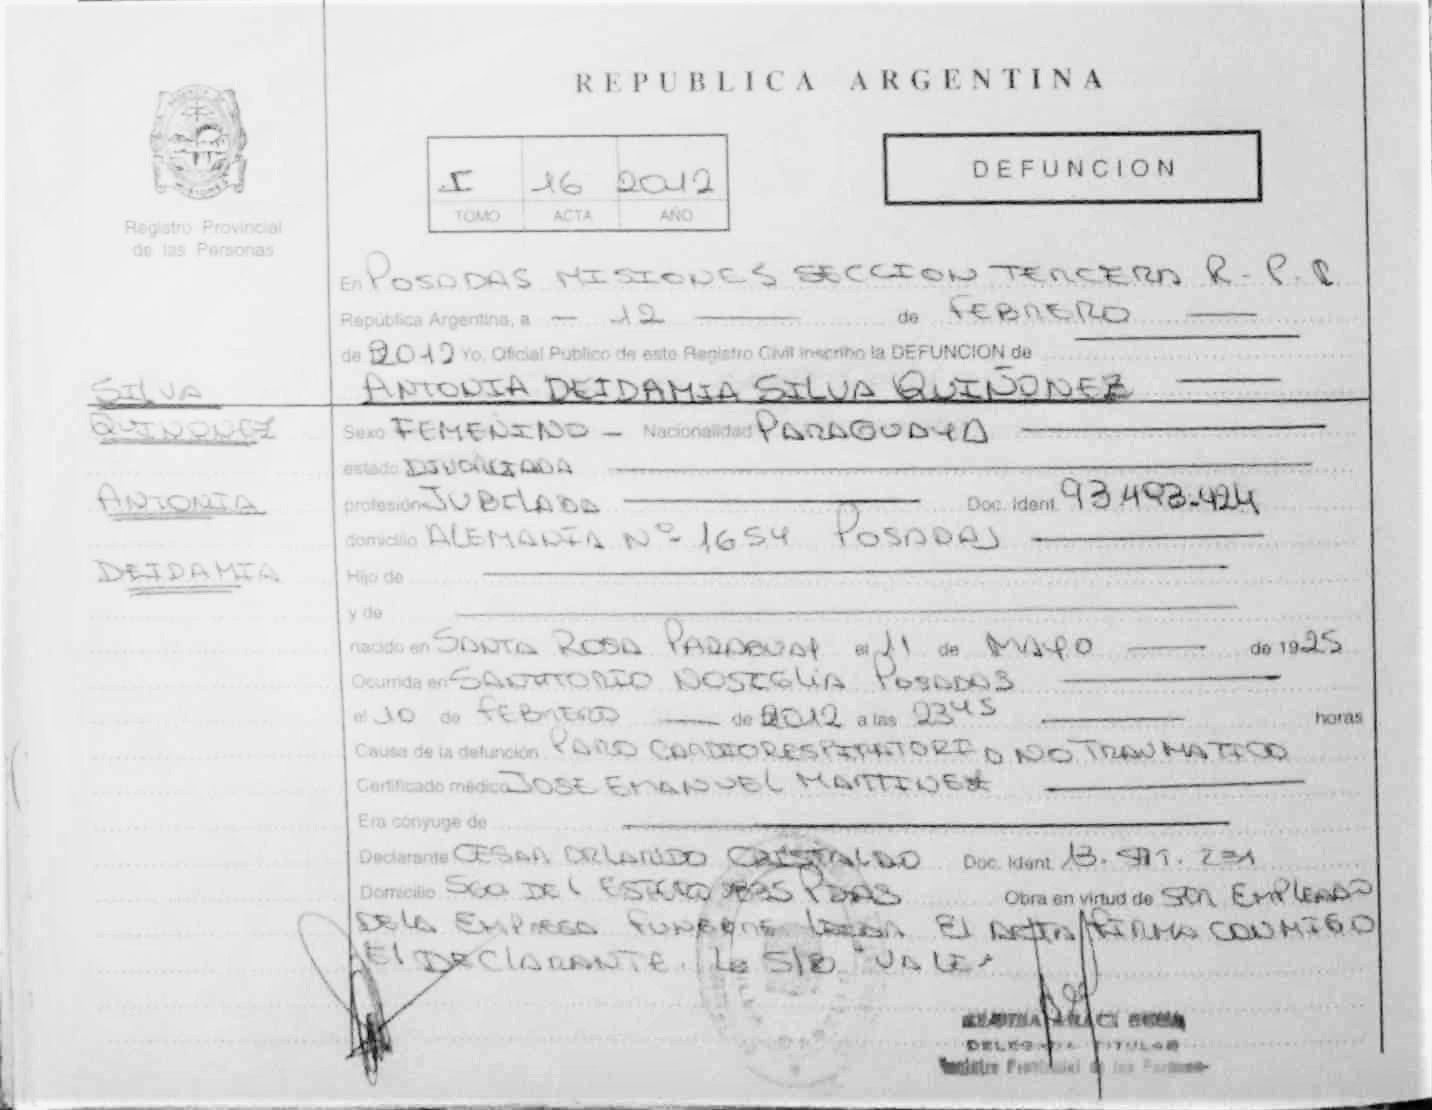 REPUBLICA ARGENTINA
I 16 2012
TOMO ACTA AÑO
DEFUNCION
Registro Provincial
de las Personas
En POSADAS MISIONES SECCION TERCERA R-P.P
República Argentina, a - 12 de FEBRERO
de 2012 Yo, Oficial Público de este Registro Civil inscribo la DEFUNCION de
ANTONIA DEIDAMIA SILVA QUIÑONEZ
SILVA
QUINONEZ
ANTONIA
DEIDAMIA
Sexo FEMENINO - Nacionalidad PARAGUAYA
estado DIVORCIADA
profesión JUBILADA Doc. Ident. 93.493.424
domicilio ALEMANIA Nº 1654 POSADAS
Hijo de
y de
nacido en SANTA ROSA PARAGUAY el 11 de MAYO de 1925
Ocurrida en SANATORIO NOSIGLIA POSADAS
el 10 de FEBRERO de 2012 a las 2345 horas
Causa de la defunción PARO CARDIORESPIRATORIO NO TRAUMATICO
Certificado médico JOSE EMANUEL MARTINEZ
Era cónyuge de
Declarante CESAR ORLANDO CRISTALDO Doc. Ident. 13.
Domicilio SGO DEL ESTERO PDAS Obra en virtud de SER EMPLEADO
DE LA EMPRESA FUNEBRE El ACTA FIRMA CONMIGO
El DECLARANTE. Lo S/B "VALE"
DELEGADA TITULAR
Registro Provincial de las Personas